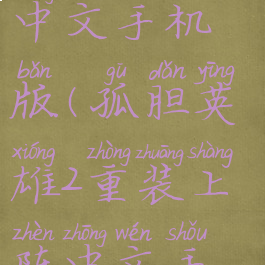 中文手机
bǎn gū dǎn yīng
版(孤胆英
xióng zhòng zhuāng shàng
雄2重装上
zhèn zhōng wén shǒu
阵中文手